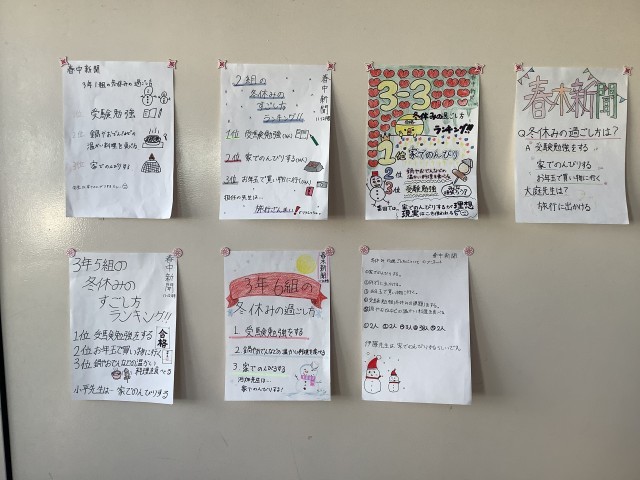 春中新聞
3年1組の冬休みの過ごし方
1位 受験勉強
2位 鍋やおでんなどの
温かい料理を食べる
3位 家でのんびりする
2組の
冬休みの
すごし方
ランキング!!
春中新聞
1位 受験勉強
2位 家でのんびりする
3位 お年玉で買い物に行く
担任の先生は…
旅行
3-3
冬休みの過ごし方
ランキング!!!
1位 家でのんびり
2位 鍋やおでんなどの
温かい料理を食べる
3位 受験勉強
家でのんびりするのが理想
現実は
春木新聞
Q.冬休みの過ごし方は?
A 受験勉強をする
家でのんびりする
お年玉で買い物に行く
大庭先生は?
旅行に出かける
春中新聞
3年5組の
冬休みの
すごし方
ランキング!!
1位 受験勉強をする
2位 お年玉で買い物に行く
3位 鍋やおでんなどの温かい
料理を食べる
合格!
小平先生は… 家でのんびりする
春木新聞
3年6組の
冬休みの過ごし方
1. 受験勉強をする
2. 鍋やおでんなどの温かい料理を食べる
3. 家でのんびりする
先生は…
家でのんびりする!
春中新聞
①家でのんびりする。
②旅行に出かける。
③お年玉で買い物に行く。
伊原先生は、家でのんびりするらしいです。